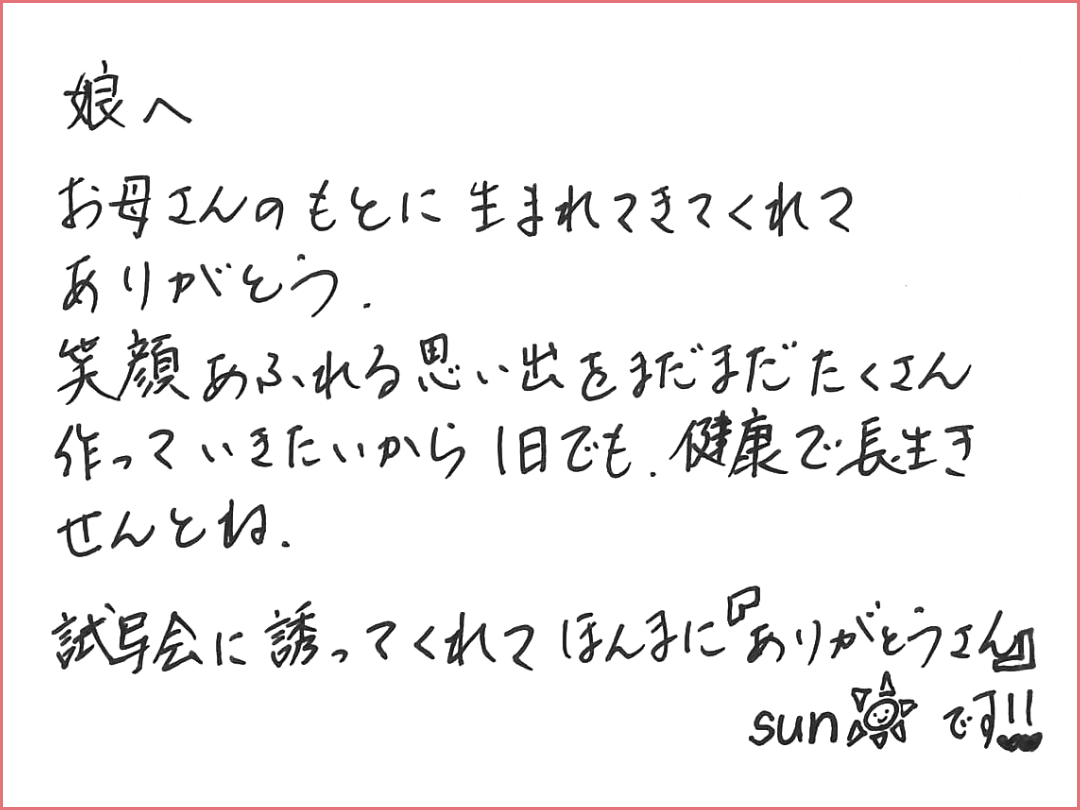 娘へ
お母さんのもとに生まれてきてくれて
ありがとう.
笑顔あふれる思い出をまだまだたくさん
作っていきたいから1日でも.健康で長生き
せんとね.
試写会に誘ってくれてほんまに『ありがとうさん』
sunです!!